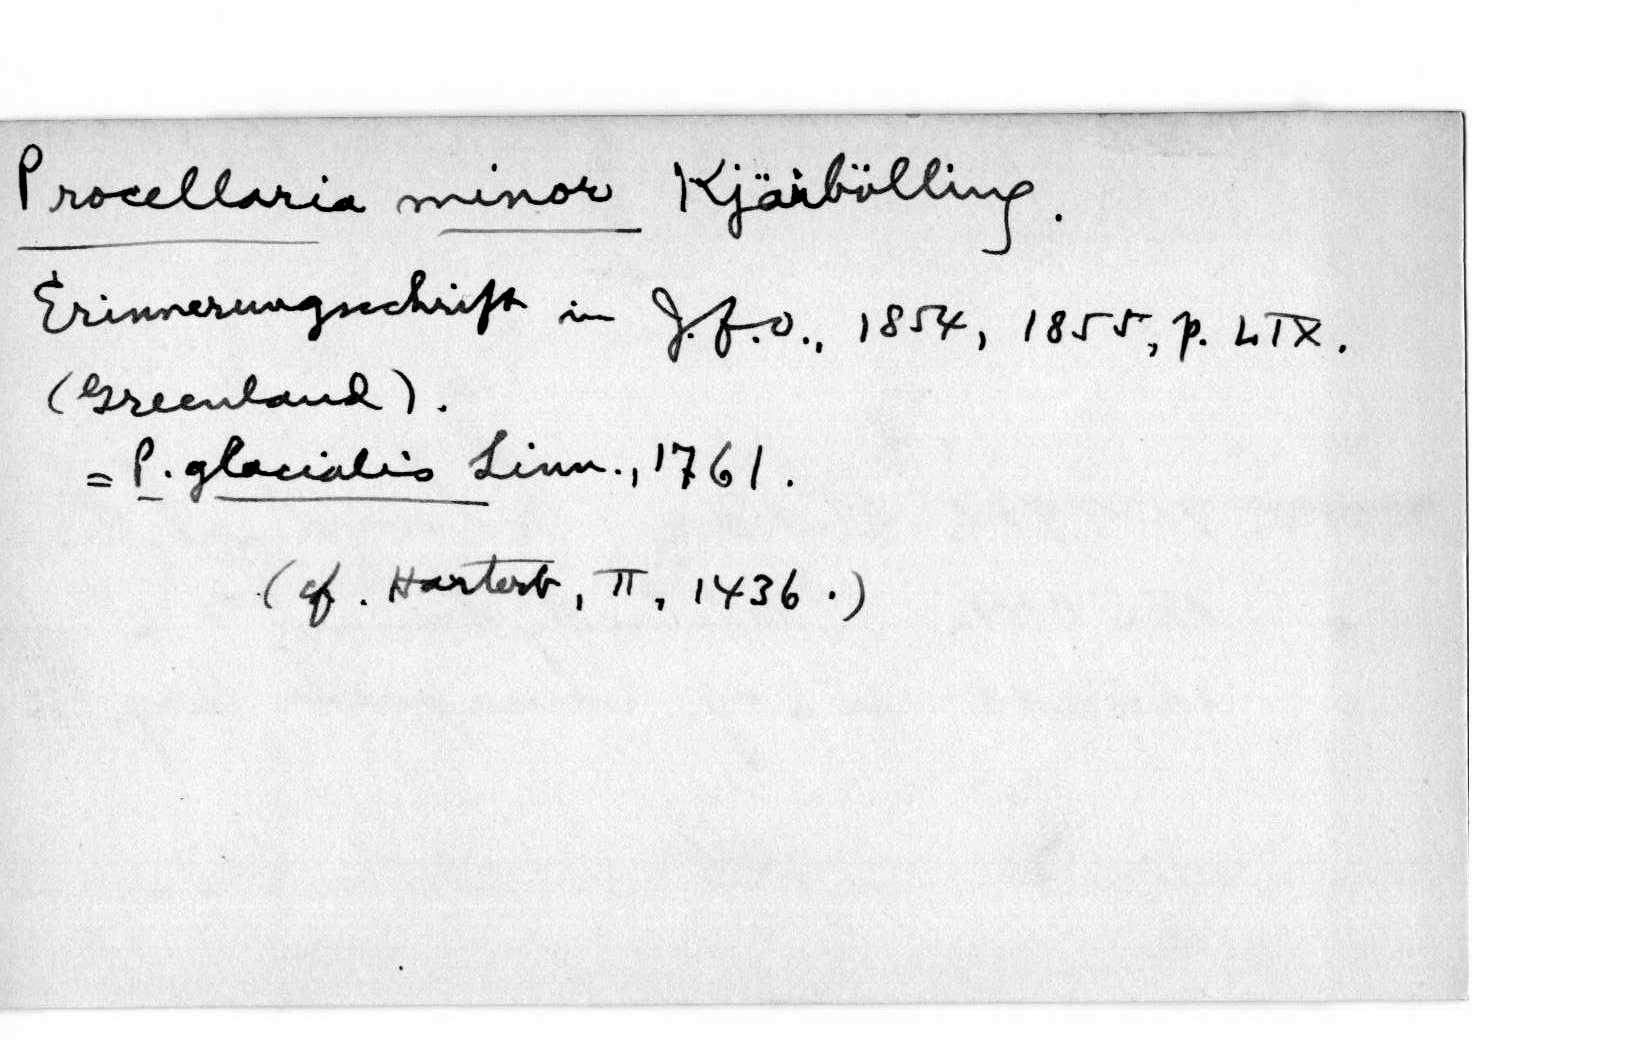 Procellaria minor Kjärbölling.
Erinnerungsschrift in J.f.O., 1854, 1855, p. LIX.
(Greenland).
= P. glacialis Linn., 1761.
(cf. Hartert, II, 1436.)